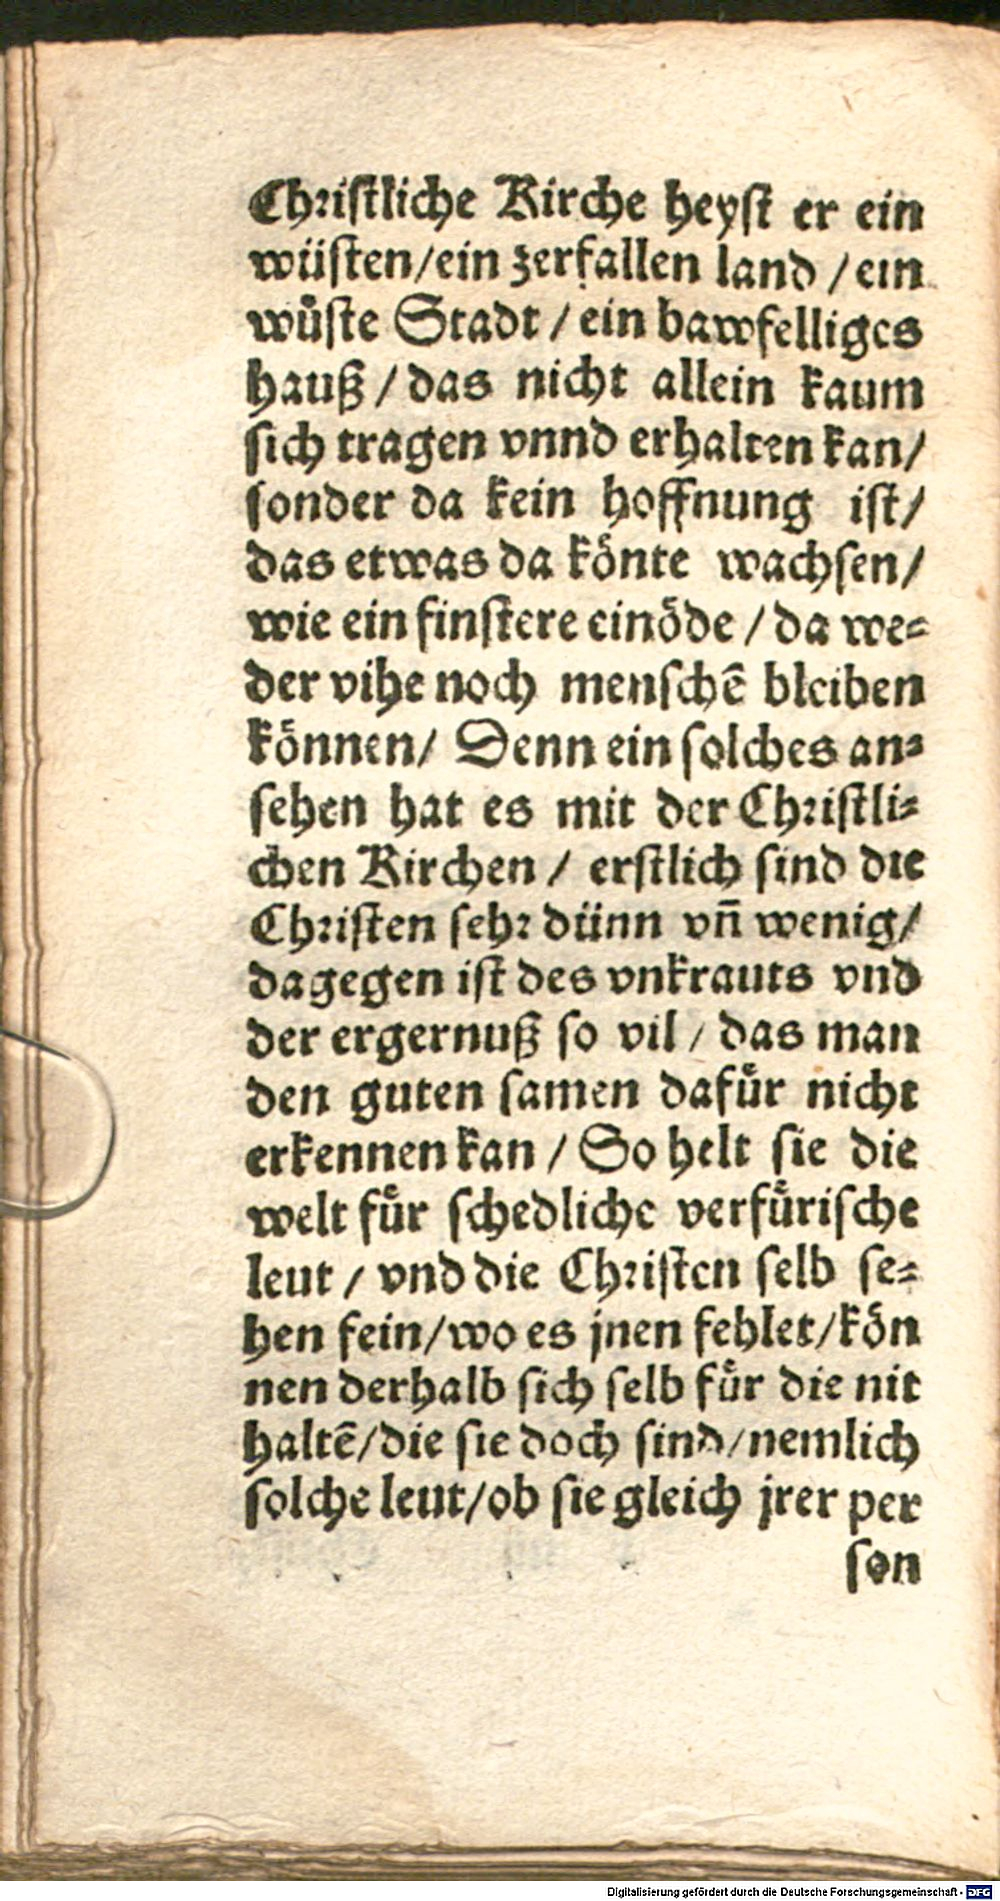 Christliche Kirche heyst er ein
wüsten/ein zerfallen land / ein
wuͤste Stadt / ein bawfelliges
hauß / das nicht allein kaum
sich tragen vnnd erhalten kan/
sonder da kein hoffnung ist/
das etwas da koͤnte wachsen/
wie ein finstere einoͤde / da we-
der vihe noch menschē bleiben
koͤnnen/ Denn ein solches an-
sehen hat es mit der Christli-
chen Kirchen / erstlich sind die
Christen sehr dünn vñ wenig/
dagegen ist des vnkrauts vnd
der ergernuß so vil / das man
den guten samen dafuͤr nicht
erkennen kan / So helt sie die
welt fuͤr schedliche verfuͤrische
leut / vnd die Christen selb se-
hen fein/wo es jnen fehlet/koͤn
nen derhalb sich selb fuͤr die nit
haltē/die sie doch sind/nemlich
solche leut/ob sie gleich jrer per
son
Digitalisierung gefördert durch die Deutsche Forschungsgemeinschaft - DFG